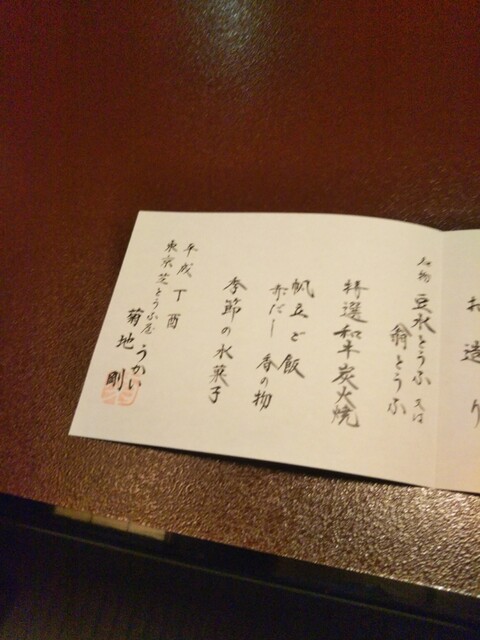 お造り
名物 豆水とうふ 又は
翁とうふ
特選和牛炭火焼
帆立ご飯
赤だし 香の物
季節の水菓子
平成丁酉
東京芝とうふ屋うかい
菊地 剛